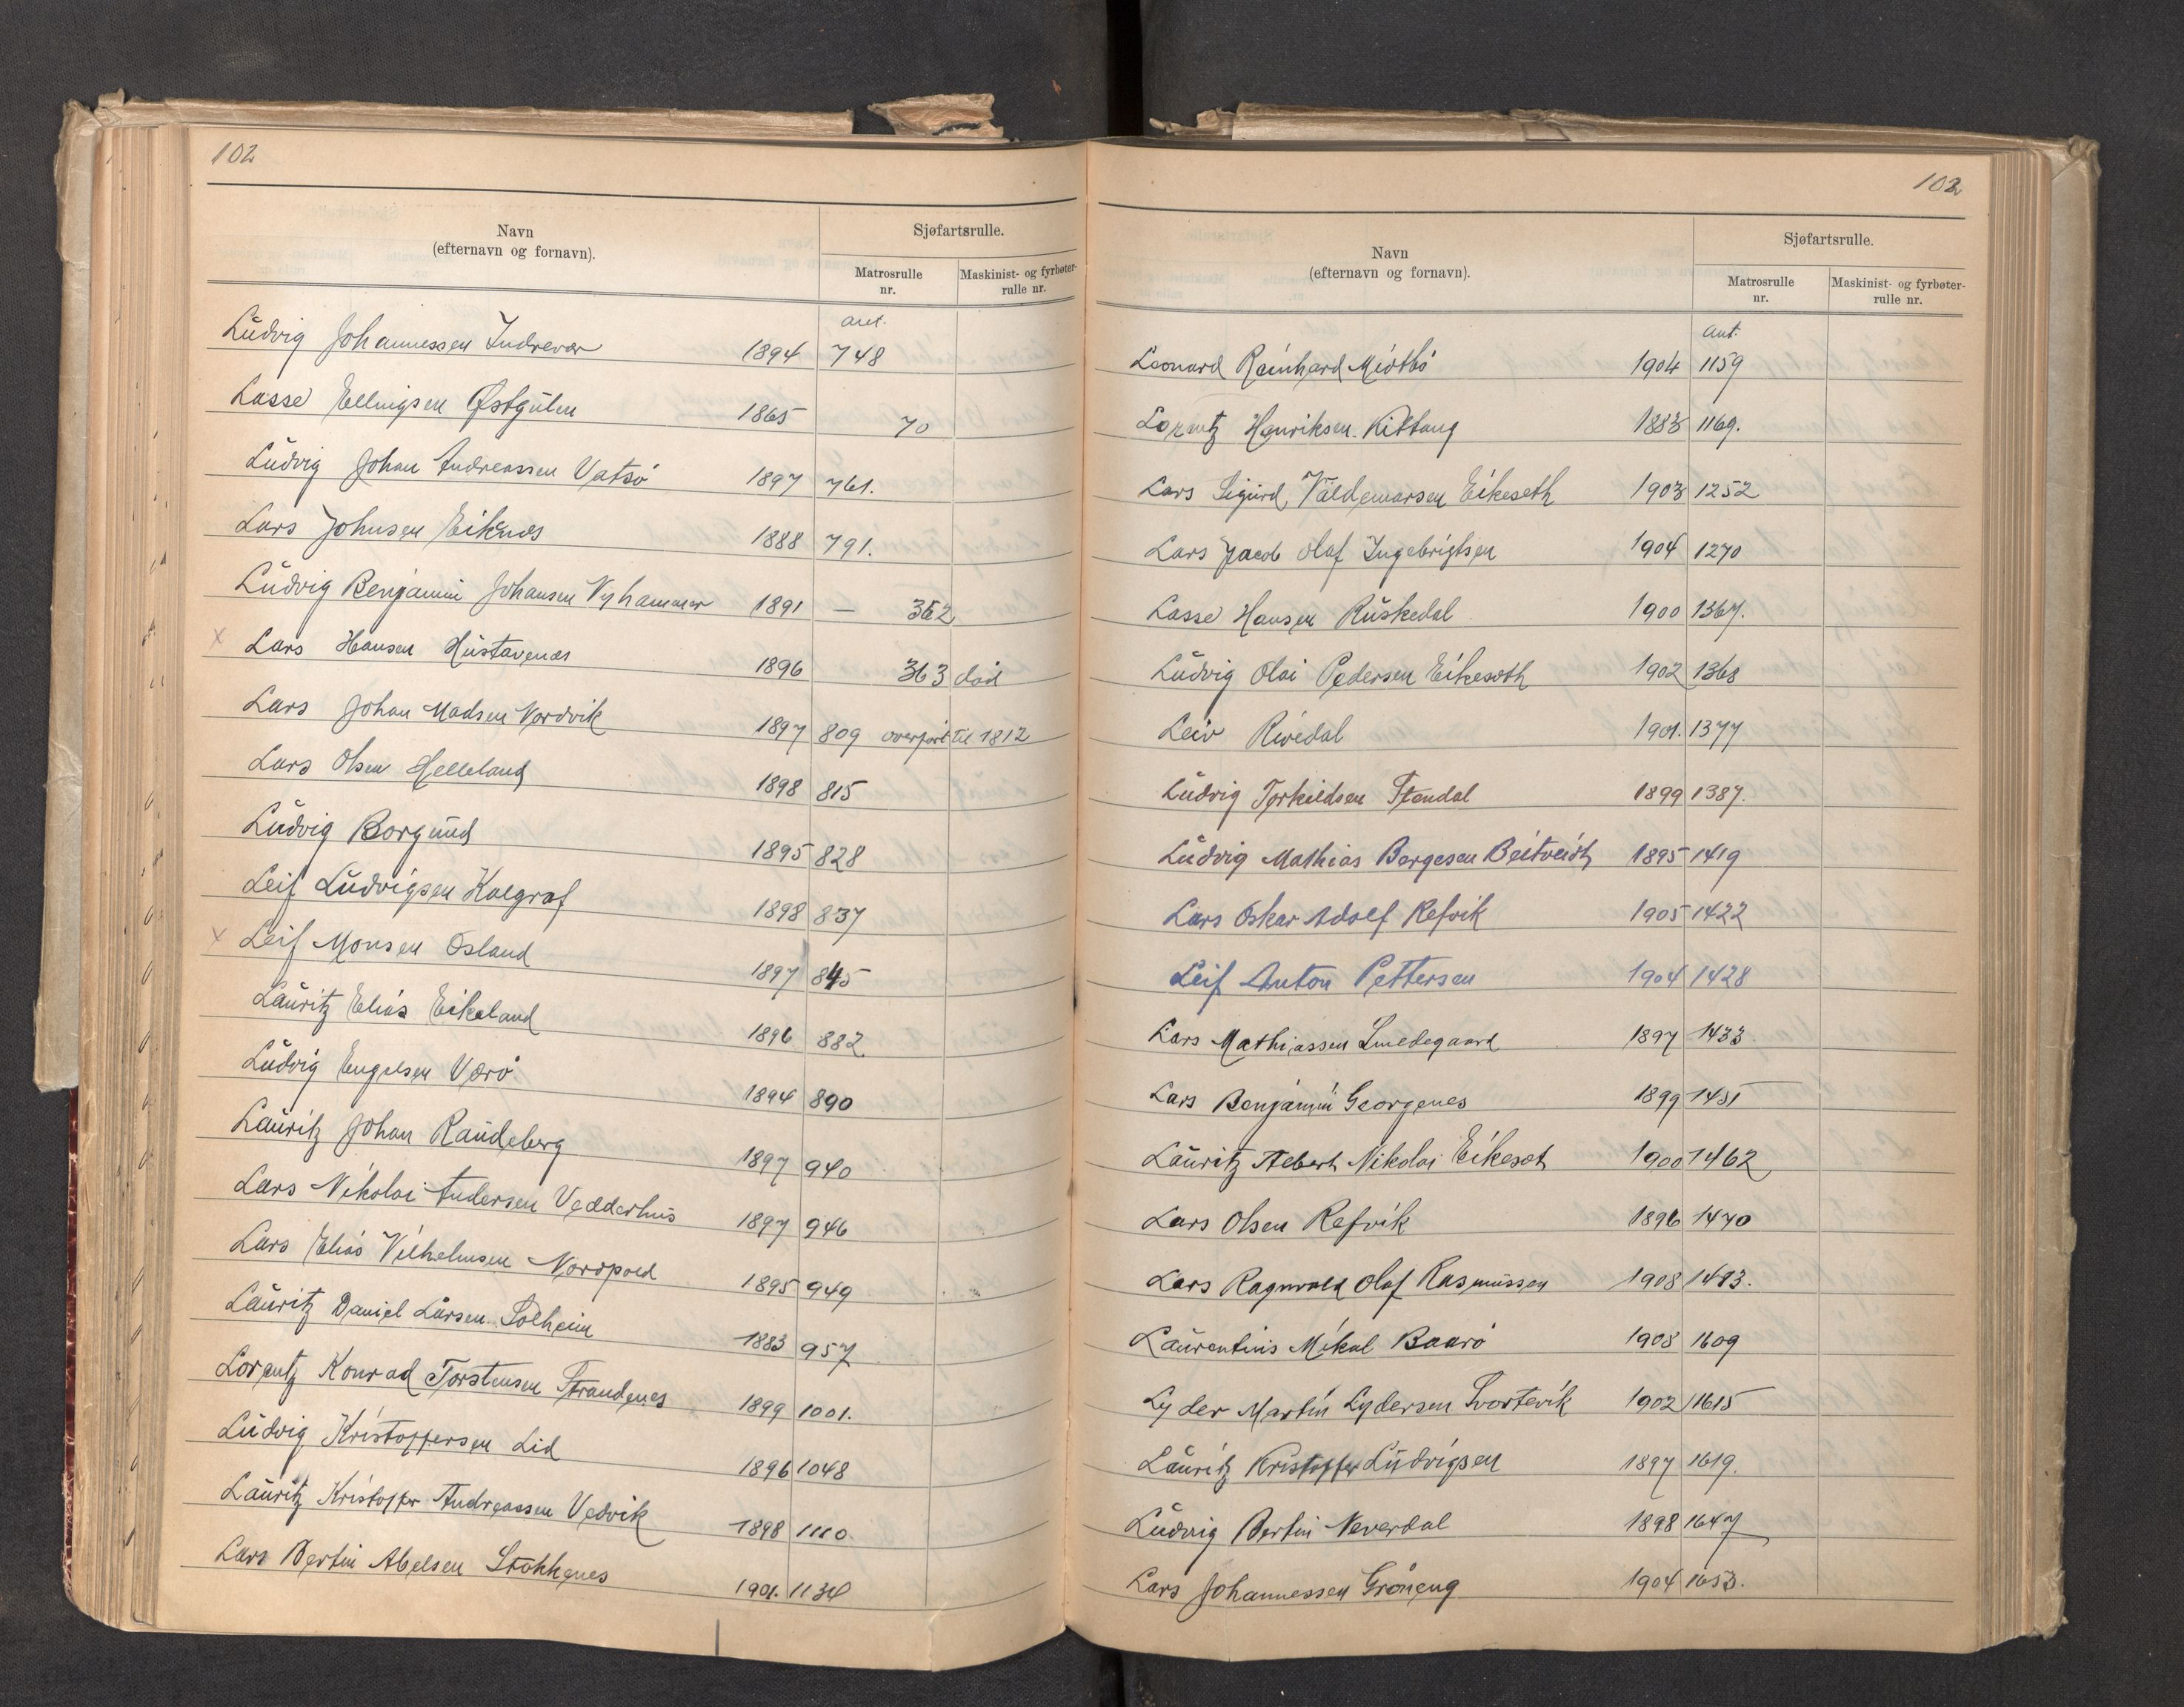 102
Navn
(efternavn og fornavn).
Sjøfartsrulle.
Matrosrulle nr.
Maskinist- og fyrbøter-rulle nr.
ant.
Ludvig Johannessen Indrevær 1894 748
Lasse Ellingsen Østgulen 1865 70
Ludvig Johan Andreassen Vatsö 1897 761.
Lars Johnsen Eiknes 1888 791.
Ludvig Benjamin Johansen Nyhammer 1891 — 362
x Lars Hansen Hustavenes 1896 363 död
Lars Johan Madsen Nordvik 1897 809 overfört til 1812
Lars Olsen Helleland 1898 815
Ludvig Borgund 1895 828
Leif Ludvigsen Kalgraf 1898 837
x Leif Monsen Osland 1897 845
Lauritz Elias Eikeland 1896 882
Ludvig Engelsen Værö 1894 890
Lauritz Johan Raudeberg 1897 940
Lars Nikolai Andersen Vedderhus 1897 946
Lars Elias Vilhelmsen Nordpold 1895 949
Lauritz Daniel Larsen Solheim 1883 957
Lorentz Konrad Torstensen Strandenes 1899 1001.
Ludvig Kristoffersen Lid 1896 1048
Lauritz Kristoffer Andreassen Vedvik 1898 1110
Lars Bertin Abelsen Stokkenes 1901. 1134
102
Navn
(efternavn og fornavn).
Sjøfartsrulle.
Matrosrulle nr.
Maskinist- og fyrbøter-rulle nr.
ant.
Leonard Reinhard Midtbö 1904 1159
Lorentz Henriksen Kittang 1883 1169.
Lars Sigurd Valdemarsen Eikeseth 1903 1252
Lars Jacob Olaf Ingebrigtsen 1904 1270
Lasse Hansen Ruskedal 1900 1367.
Ludvig Olai Pedersen Eikeseth 1902 1368
Leiv Rivedal 1901. 1377
Ludvig Torkildsen Stendal 1899 1387.
Ludvig Mathias Børgesen Beitveith 1895 1419
Lars Oskar Adolf Refvik 1905 1422
Leif Anton Pettersen 1904 1428
Lars Mathiassen Smedegaard 1897 1433
Lars Benjamin Georgenes 1899 1451
Lauritz Albert Nikolai Eikeset 1900 1462
Lars Olsen Refvik 1896 1470
Lars Ragnvald Olaf Rasmussen 1908 1483.
Laurentius Mikal Baarö 1908 1609
Lyder Martin Lydersen Svortevik 1902 1615
Lauritz Kristoffer Ludvigsen 1897 1619.
Ludvig Bertin Neverdal 1898 1647
Lars Johannessen Gröneng 1904 1653.